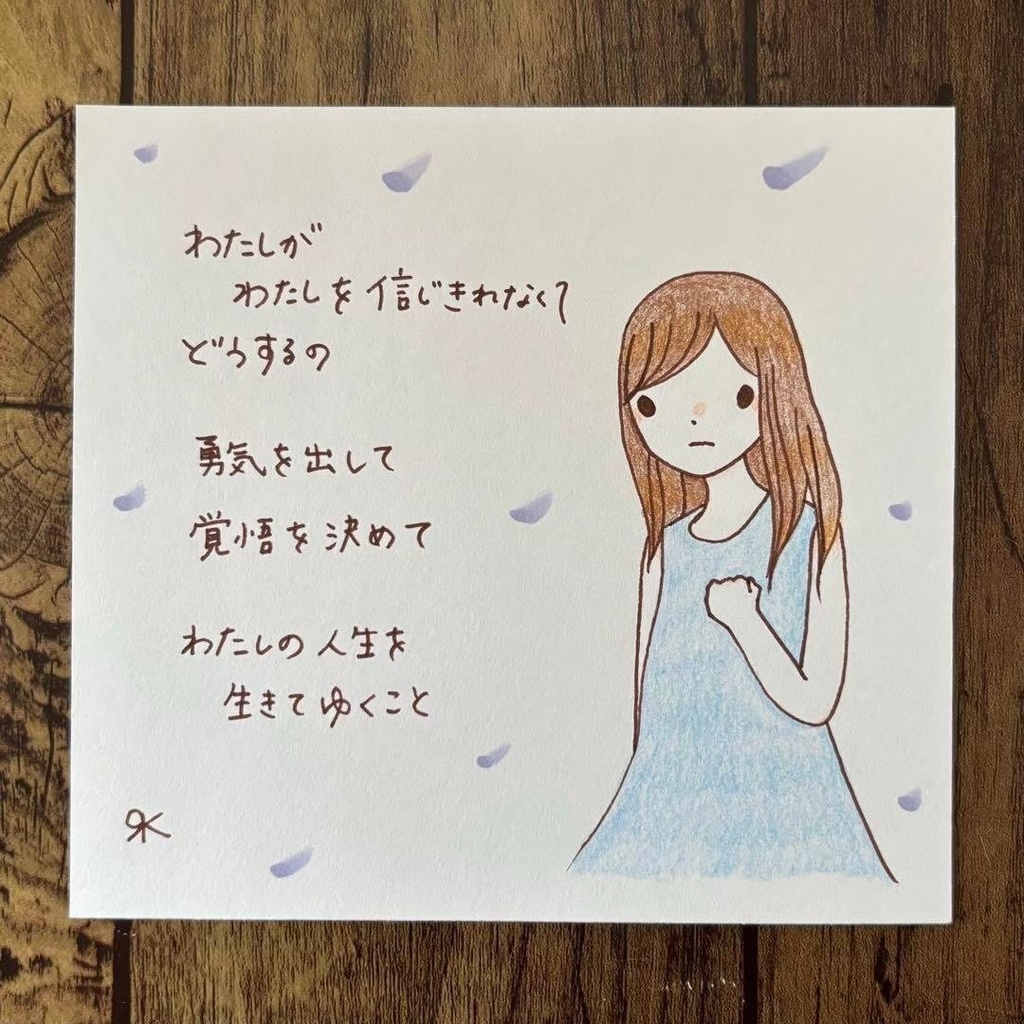 わたしが
わたしを信じきれなくて
どうするの
勇気を出して
覚悟を決めて
わたしの人生を
生きてゆくこと